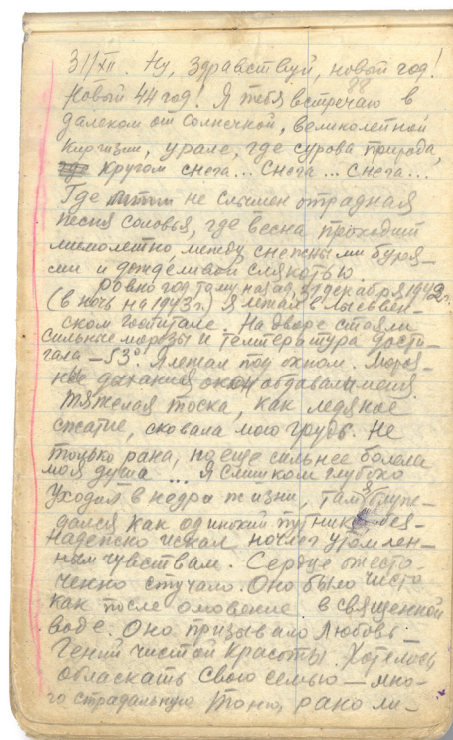 31/XII. Ну, здравствуй, новый год!
Новый 44 год! Я тебя встречаю в
далеком от солнечной, великолепной
Киргизии, урале, где сурова природа,
кругом снега... снега... снега...
Где не слышен отрадная
песня соловья, где весна проходит
мимолетно, между снежными буря-
ми и дождливой слякотью
Ровно год тому назад, 31 декабря 1942г.
(в ночь на 1943г.) я лежал в Лысьвен-
ском госпитале. На дворе стояли
сильные морозы и температура дости-
гала -53°. Я лежал под окном. Мороз-
ные дыхания окон обдавали меня.
Тяжелая тоска, как ледяное
сжатие, сковала мою грудь. Не
только рана, но еще сильнее болела
моя душа ... Я слишком глубоко
уходил в недра жизни, там
как одинокий путник без-
надежно искал ночлег утомлен-
ным чувствам. Сердце ожесто-
ченно стучало. Оно было чисто
как после омовение в священной
воде. Оно призывало Любовь —
Гений чистой красоты. Хотелось
обласкать свою семью — мно-
го страдальную Тоню, рано ли-